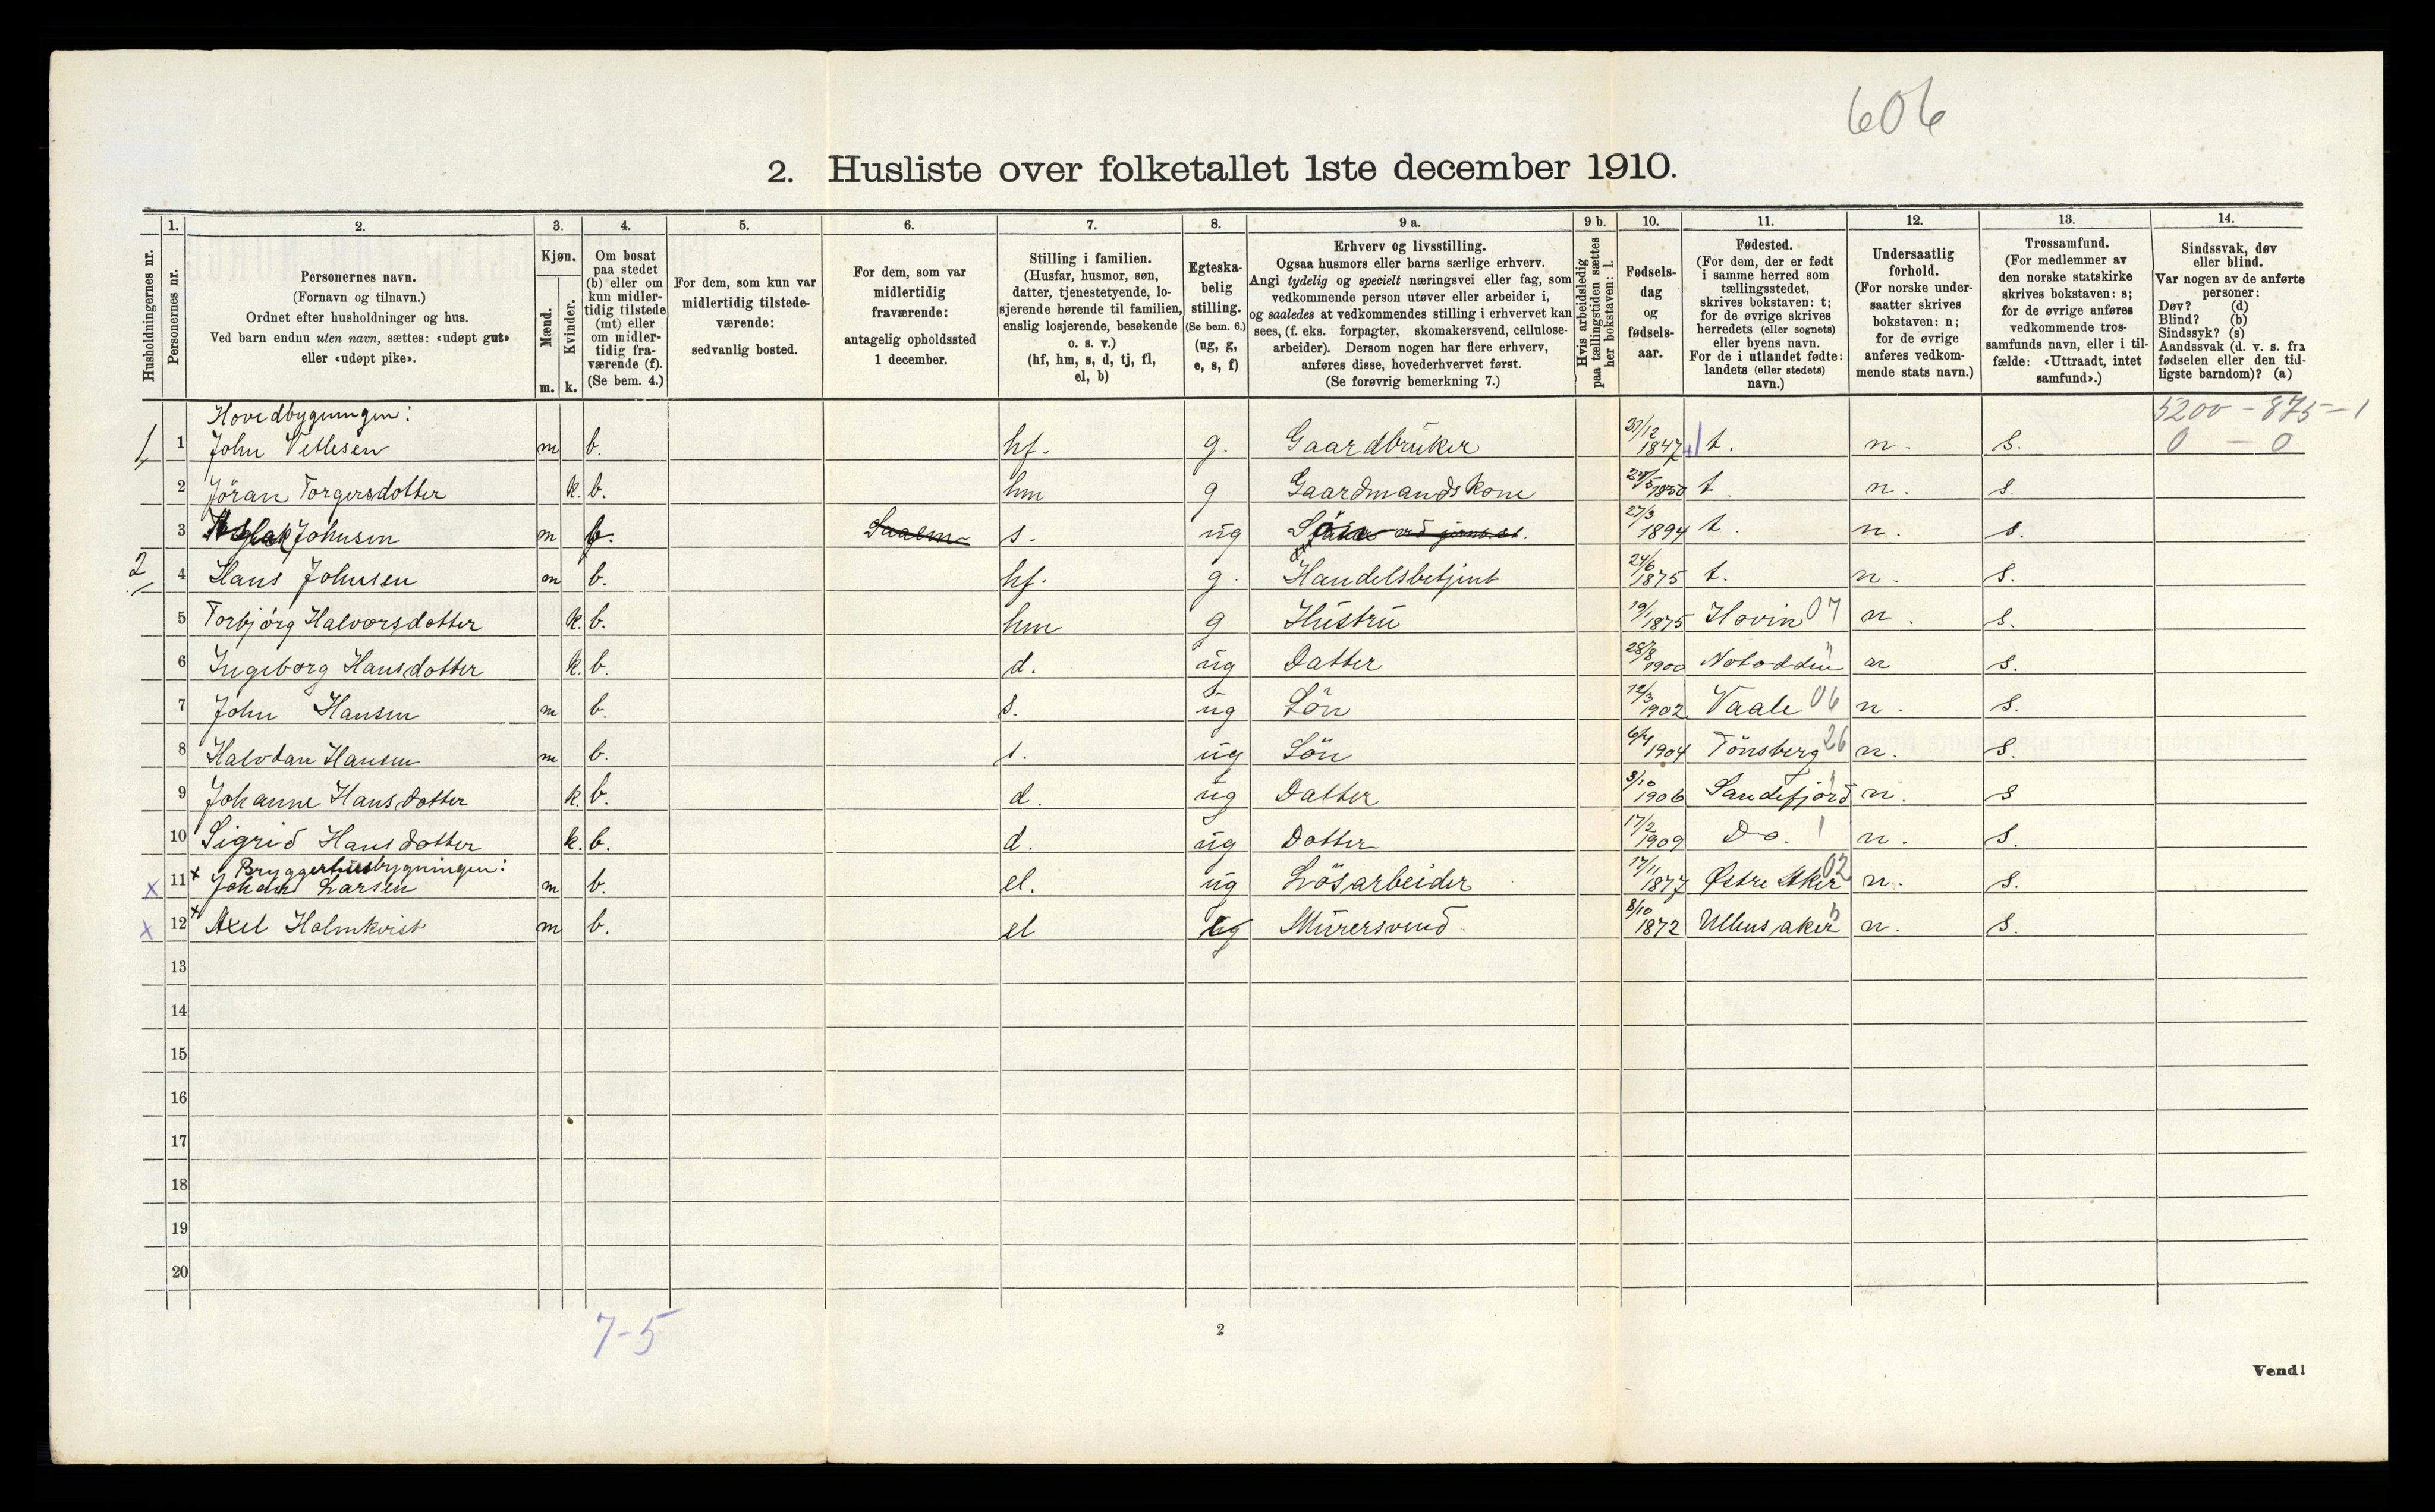 606
2. Husliste over folketallet 1ste december 1910.
Husholdningernes nr.
1. Personernes nr.
2. Personernes navn. (Fornavn og tilnavn.) Ordnet efter husholdninger og hus. Ved barn endnu uten navn, sættes: «udøpt gut» eller «udøpt pike».
3. Kjøn. Mænd. m. Kvinder. k.
4. Om bosat paa stedet (b) eller om kun midler-tidig tilstede (mt) eller om midler-tidig fra-værende (f). (Se bem. 4.)
5. For dem, som kun var midlertidig tilstede-værende: sedvanlig bosted.
6. For dem, som var midlertidig fraværende: antagelig opholdssted 1 december.
7. Stilling i familien. (Husfar, husmor, søn, datter, tjenestetyende, lo-sjerende hørende til familien, enslig losjerende, besøkende o. s. v.) (hf, hm, s, d, tj, fl, el, b)
8. Egteska-belig stilling. (Se bem. 6.) (ug, g, e, s, f)
9 a. Erhverv og livsstilling. Ogsaa husmors eller barns særlige erhverv. Angi tydelig og specielt næringsvei eller fag, som vedkommende person utøver eller arbeider i, og saaledes at vedkommendes stilling i erhvervet kan sees, (f. eks. forpagter, skomakersvend, cellulose-arbeider). Dersom nogen har flere erhverv, anføres disse, hovederhvervet først. (Se forøvrig bemerkning 7.)
9 b. Hvis arbeidsledig paa tællingstiden sættes her bokstaven: l.
10. Fødsels-dag og fødsels-aar.
11. Fødested. (For dem, der er født i samme herred som tællingsstedet, skrives bokstaven: t; for de øvrige skrives herredets (eller sognets) eller byens navn. For de i utlandet fødte: landets (eller stedets) navn.)
12. Undersaatlig forhold. (For norske under-saatter skrives bokstaven: n; for de øvrige anføres vedkom-mende stats navn.)
13. Trossamfund. (For medlemmer av den norske statskirke skrives bokstaven: s; for de øvrige anføres vedkommende tros-samfunds navn, eller i til-fælde: «Uttraadt, intet samfund».)
14. Sindssvak, døv eller blind. Var nogen av de anførte personer: Døv? (d) Blind? (b) Sindssyk? (s) Aandssvak (d. v. s. fra fødselen eller den tid-ligste barndom)? (a)
Hovedbygningen: 5200 - 875 - 1
1 1 John Vetlesen m b. hf. g. Gaardbruker 31/12 1847 t. n. s. 0 - 0
2 Jöran Torgersdotter k. b. hm g Gaardmandskone 1850 t n. s.
3 Johnsen m b. s. ug 27/3 1894 t. n. s.
2 4 Hans Johnsen m b. hf. g. Handelsbetjent 24/6 1875 t. n. s.
5 Torbjörg Halvorsdotter k. b. hm g Hustru 19/1 1875 Hovin 07 n. s.
6 Ingeborg Hansdotter k. b. d. ug Datter 28/8 1900 Notodden n s.
7 John Hansen m b. s. ug Sön 12/3 1902 Vaale 06 n. s.
8 Halvdan Hansen m b. s. ug Sön 6/4 1904 Tönsberg 26 n. s.
9 Johanne Hansdotter k. b. d. ug Datter 3/10 1906 Sandefjord n. s
10 Sigrid Hansdotter k. b. d. ug Dotter 17/2 1909 Do. n. s.
Bryggerhusbygningen:
x 11 x Johan Larsen m b. el. ug Lösarbeider 17/11 1877 Østre Aker 02 n. s.
x 12 x Axel Holmkvist m b. el ug Murersvend. 8/10 1872 Ullensaker n. s.
13
14
15
16
17
18
19
20
7-5
2
Vend!